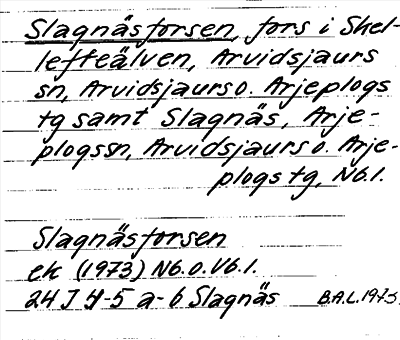 Slagnäsforsen, fors i Skel-
lefteälven, Arvidsjaurs
sn, Arvidsjaurs o. Arjeplogs
tg samt Slagnäs, Arje-
plogssn, Arvidsjaurs o. Arje-
plogs tg, Nb.l.
Slagnäsforsen
ek (1973) Nb. o. Vb. l.
24 J 4-5 a-b Slagnäs B.A.L. 1973